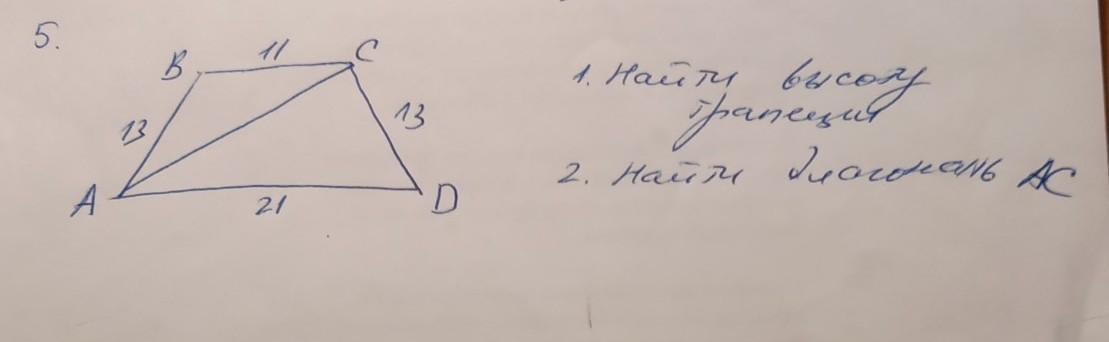 5.
B 11 C
1. Найти высоту
трапеции
13 13
2. Найти диагональ AC
A 21 D